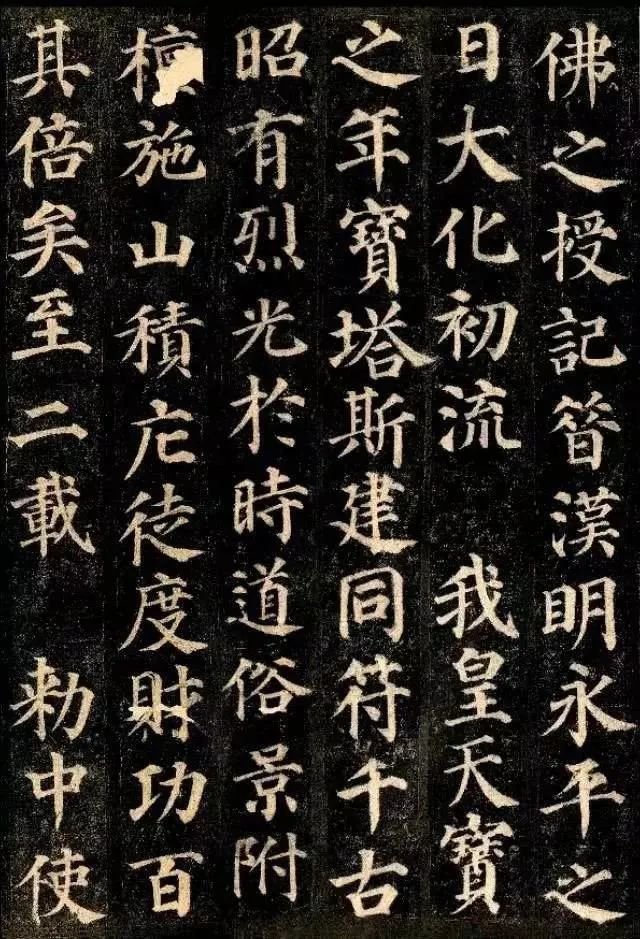 佛之授記昔漢明永平之
日大化初流 我皇天寶
之年寶塔斯建同符千古
昭有烈光於時道俗景附
檀施山積庀徒度財功百
其倍矣至二載 勅中使